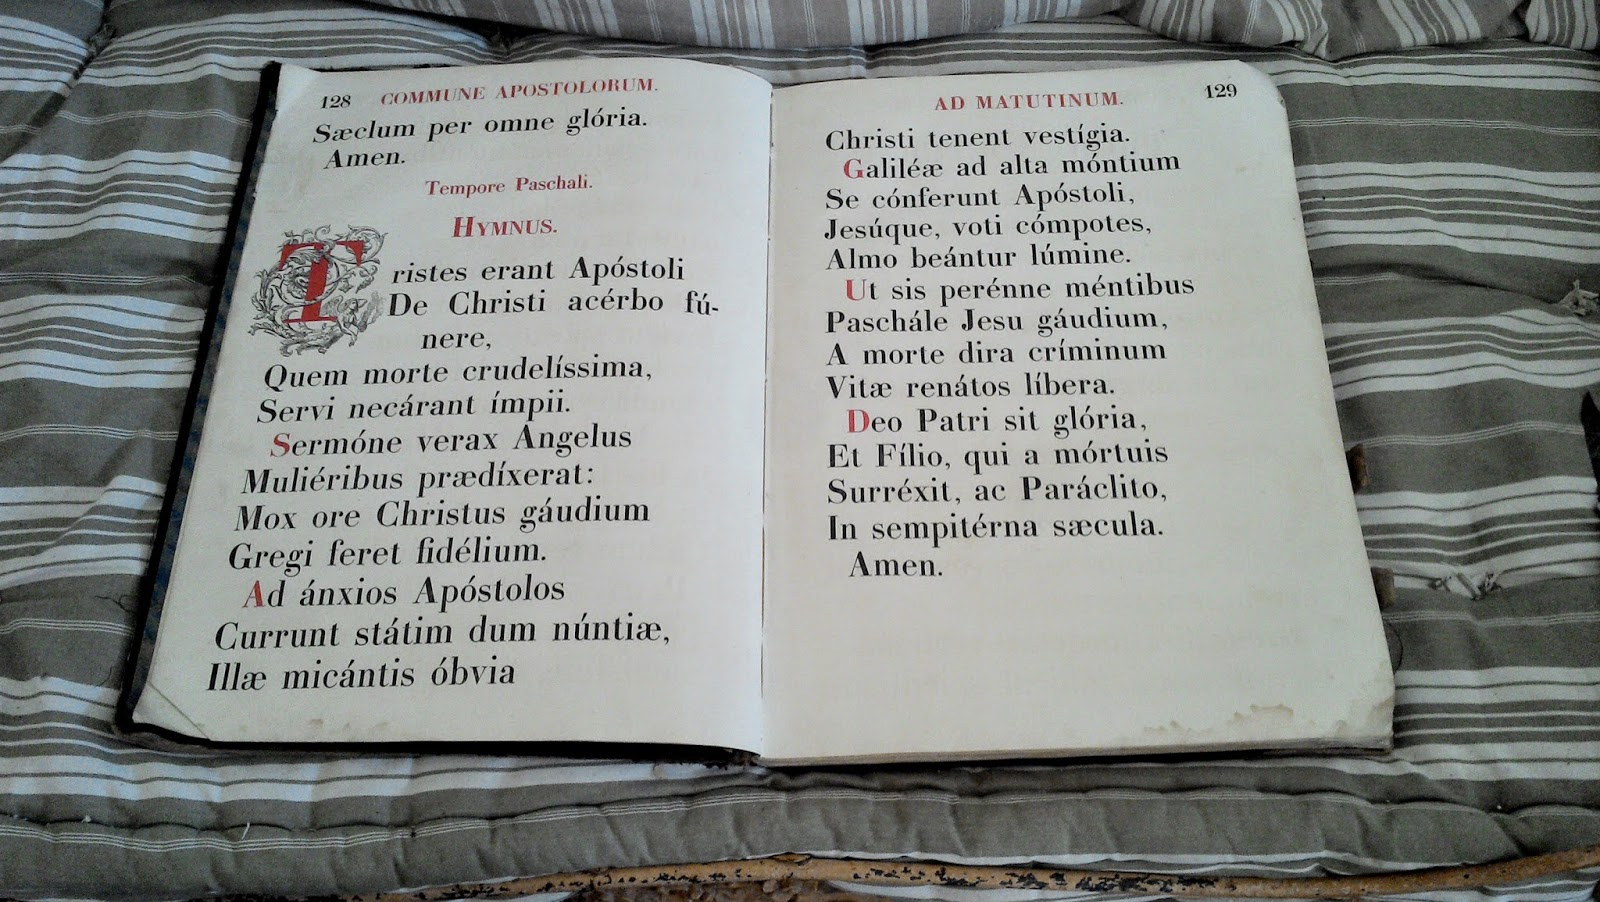 128 COMMUNE APOSTOLORUM.
Sæclum per omne glória.
Amen.
Tempore Paschali.
HYMNUS.
Tristes erant Apóstoli
De Christi acérbo fú-
nere,
Quem morte crudelíssima,
Servi necárant ímpii.
Sermóne verax Angelus
Muliéribus prædíxerat:
Mox ore Christus gáudium
Gregi feret fidélium.
Ad ánxios Apóstolos
Currunt státim dum núntiæ,
Illæ micántis óbvia
AD MATUTINUM. 129
Christi tenent vestígia.
Galilǽæ ad alta móntium
Se cónferunt Apóstoli,
Jesúque, voti cómpotes,
Almo beántur lúmine.
Ut sis perénne méntibus
Paschále Jesu gáudium,
A morte dira críminum
Vitæ renátos líbera.
Deo Patri sit glória,
Et Fílio, qui a mórtuis
Surréxit, ac Paráclito,
In sempitérna sæcula.
Amen.